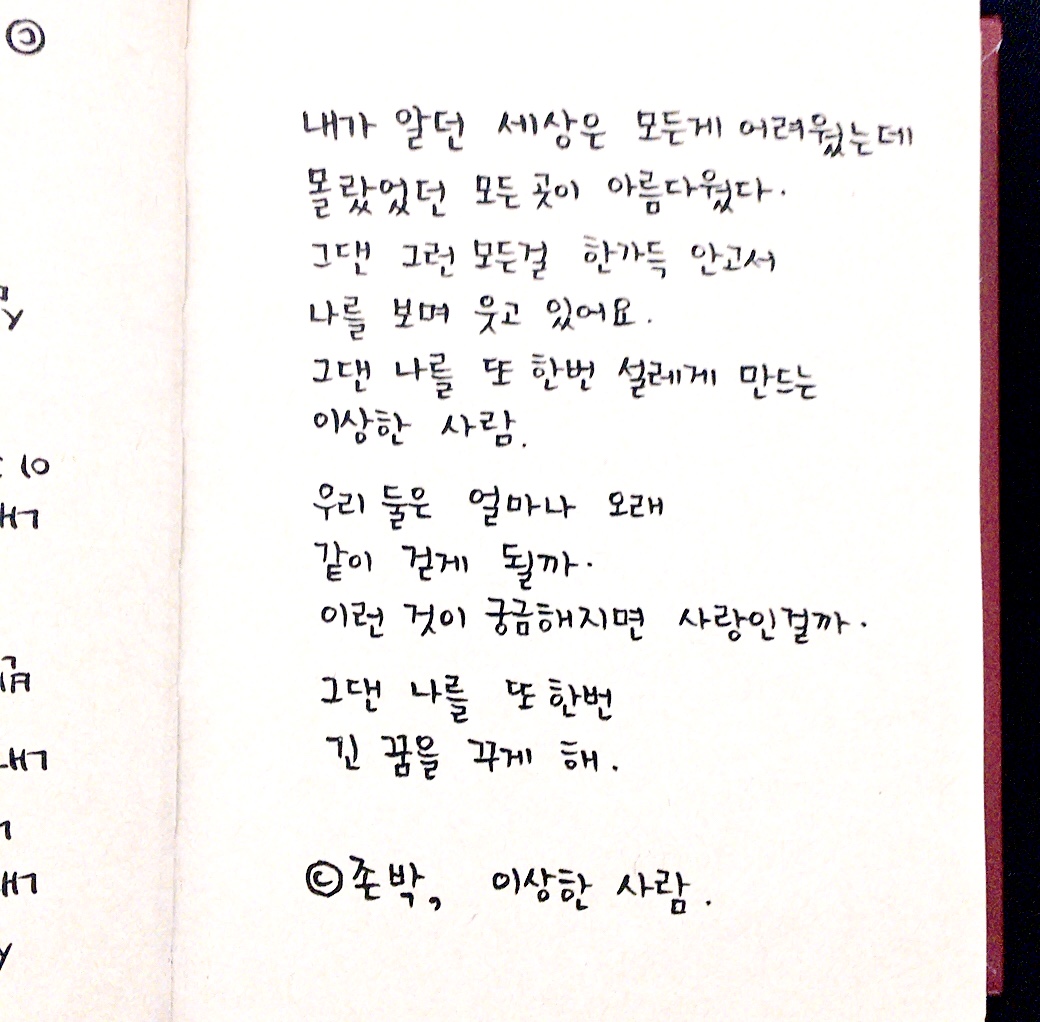 내가 알던 세상은 모든게 어려웠는데
몰랐었던 모든 곳이 아름다웠다.
그댄 그런 모든걸 한가득 안고서
나를 보며 웃고 있어요.
그댄 나를 또 한번 설레게 만드는
이상한 사람.
우리 둘은 얼마나 오래
같이 걷게 될까.
이런 것이 궁금해지면 사랑인걸까.
그댄 나를 또 한번
긴 꿈을 꾸게 해.
©존박, 이상한 사람.